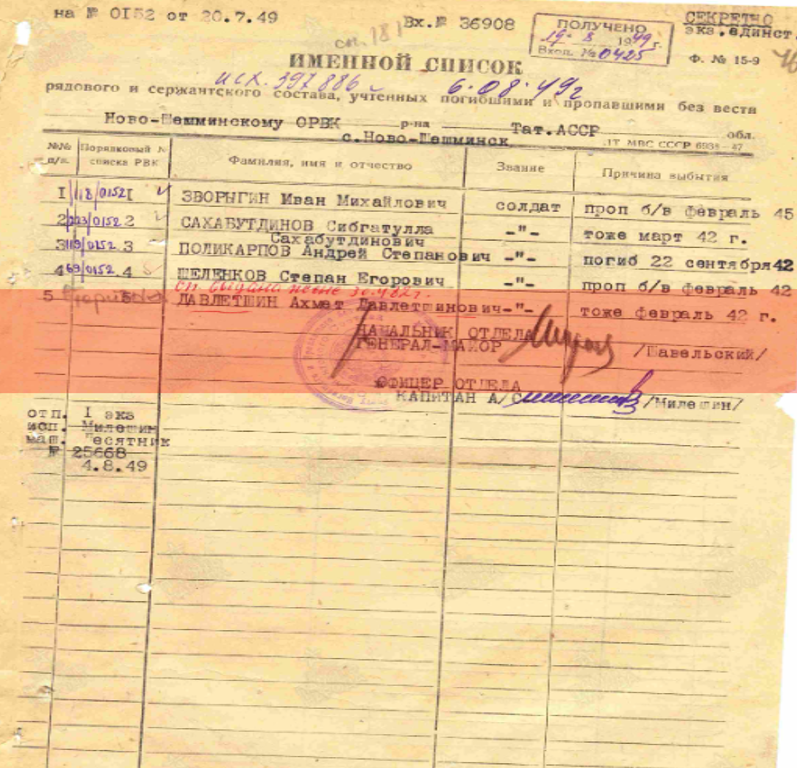 на № 0152 от 20.7.49
Вх.№ 36908
ПОЛУЧЕНО
19 8 1949г.
Вход. № 0425
СЕКРЕТНО
экз.единст.
Ф. № 15-9
181
ИМЕННОЙ СПИСОК
исх. 397886 6·08·49г
рядового и сержантского состава, учтенных погибшими и пропавшими без вести
Ново-Шешминскому ОРВК р-на Тат.АССР обл.
с.Ново-Шешминск
ЛТ МВС СССР 6938-47
№№ п/п. Порядковый № списка РВК Фамилия, имя и отчество Звание Причина выбытия
1 118/0152 1 ЗВОРЫГИН Иван Михайлович солдат проп б/в февраль 45
2 223/0152 2 САХАБУТДИНОВ Сибгатулла -"- тоже март 42 г.
Сахабутдинович
3 119/0152 3 ПОЛИКАРПОВ Андрей Степанович -"- погиб 22 сентября 42
4 69/0152 4 ШЕЛЕНКОВ Степан Егорович -"- проп б/в февраль 42
5 5 ДАВЛЕТШИН Ахмет Давлетшинович -"- тоже февраль 42 г.
НАЧАЛЬНИК ОТДЕЛА
ГЕНЕРАЛ-МАЙОР /Шавельский/
ОФИЦЕР ОТДЕЛА
КАПИТАН А/С /Милешин/
отп. 1 экз
исп. Милешин
маш. Десятник
№ 25668
4.8.49